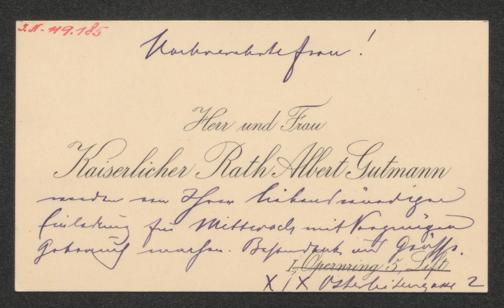 J.N. 119.185
Hochverehrte Frau!
Herr und Frau
Kaiserlicher Rath Albert Gutmann
werden von Ihrer liebenswürdigen
Einladung für Mittwoch mit Vergnügen
Gebrauch machen. Besten Dank und Grüße.
I, Opernring 5, Lift.
XIX 2